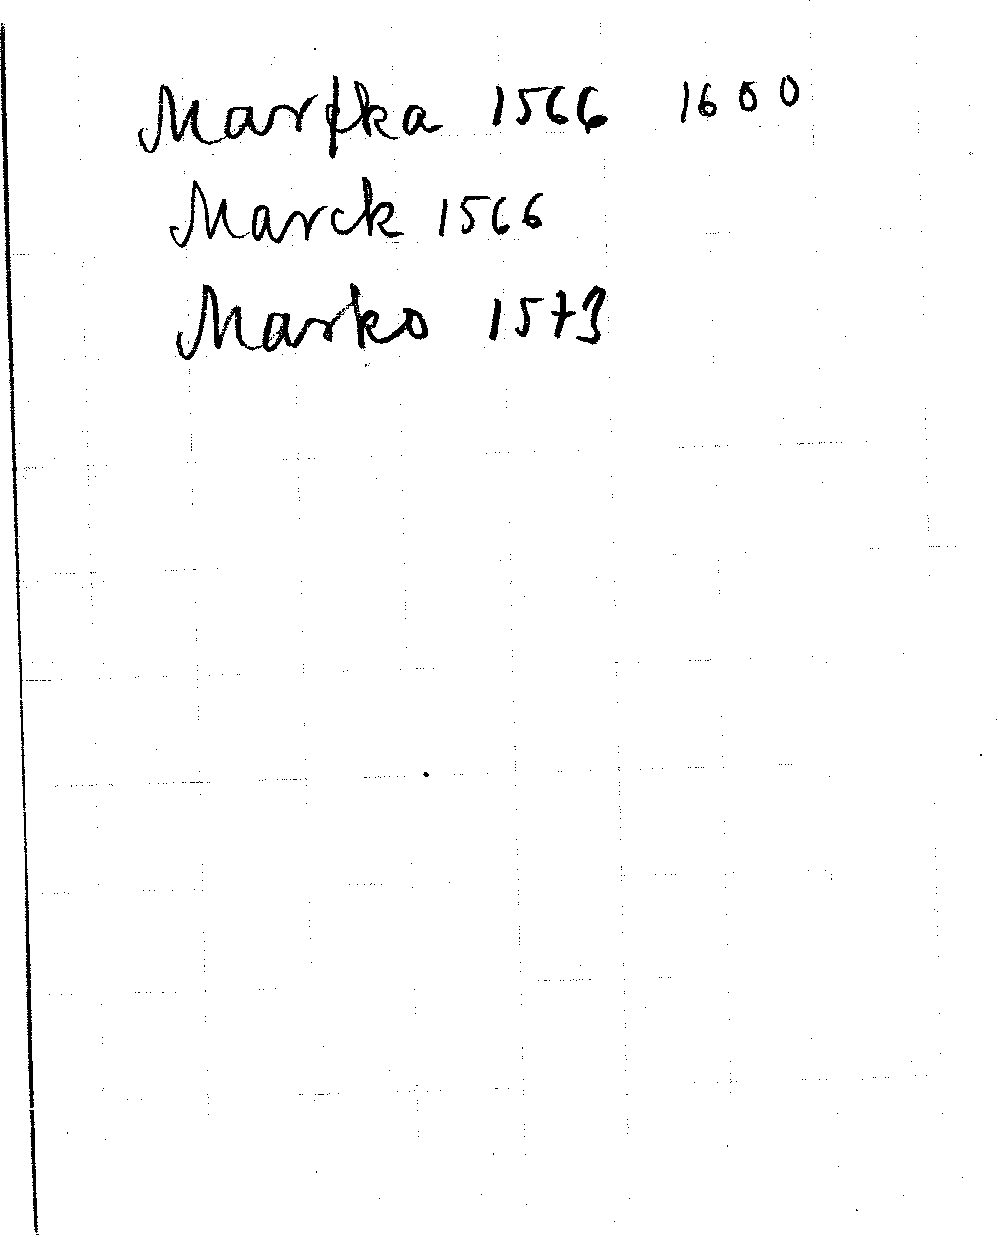 Marſka 1566 1600
Marck 1566
Marko 1573